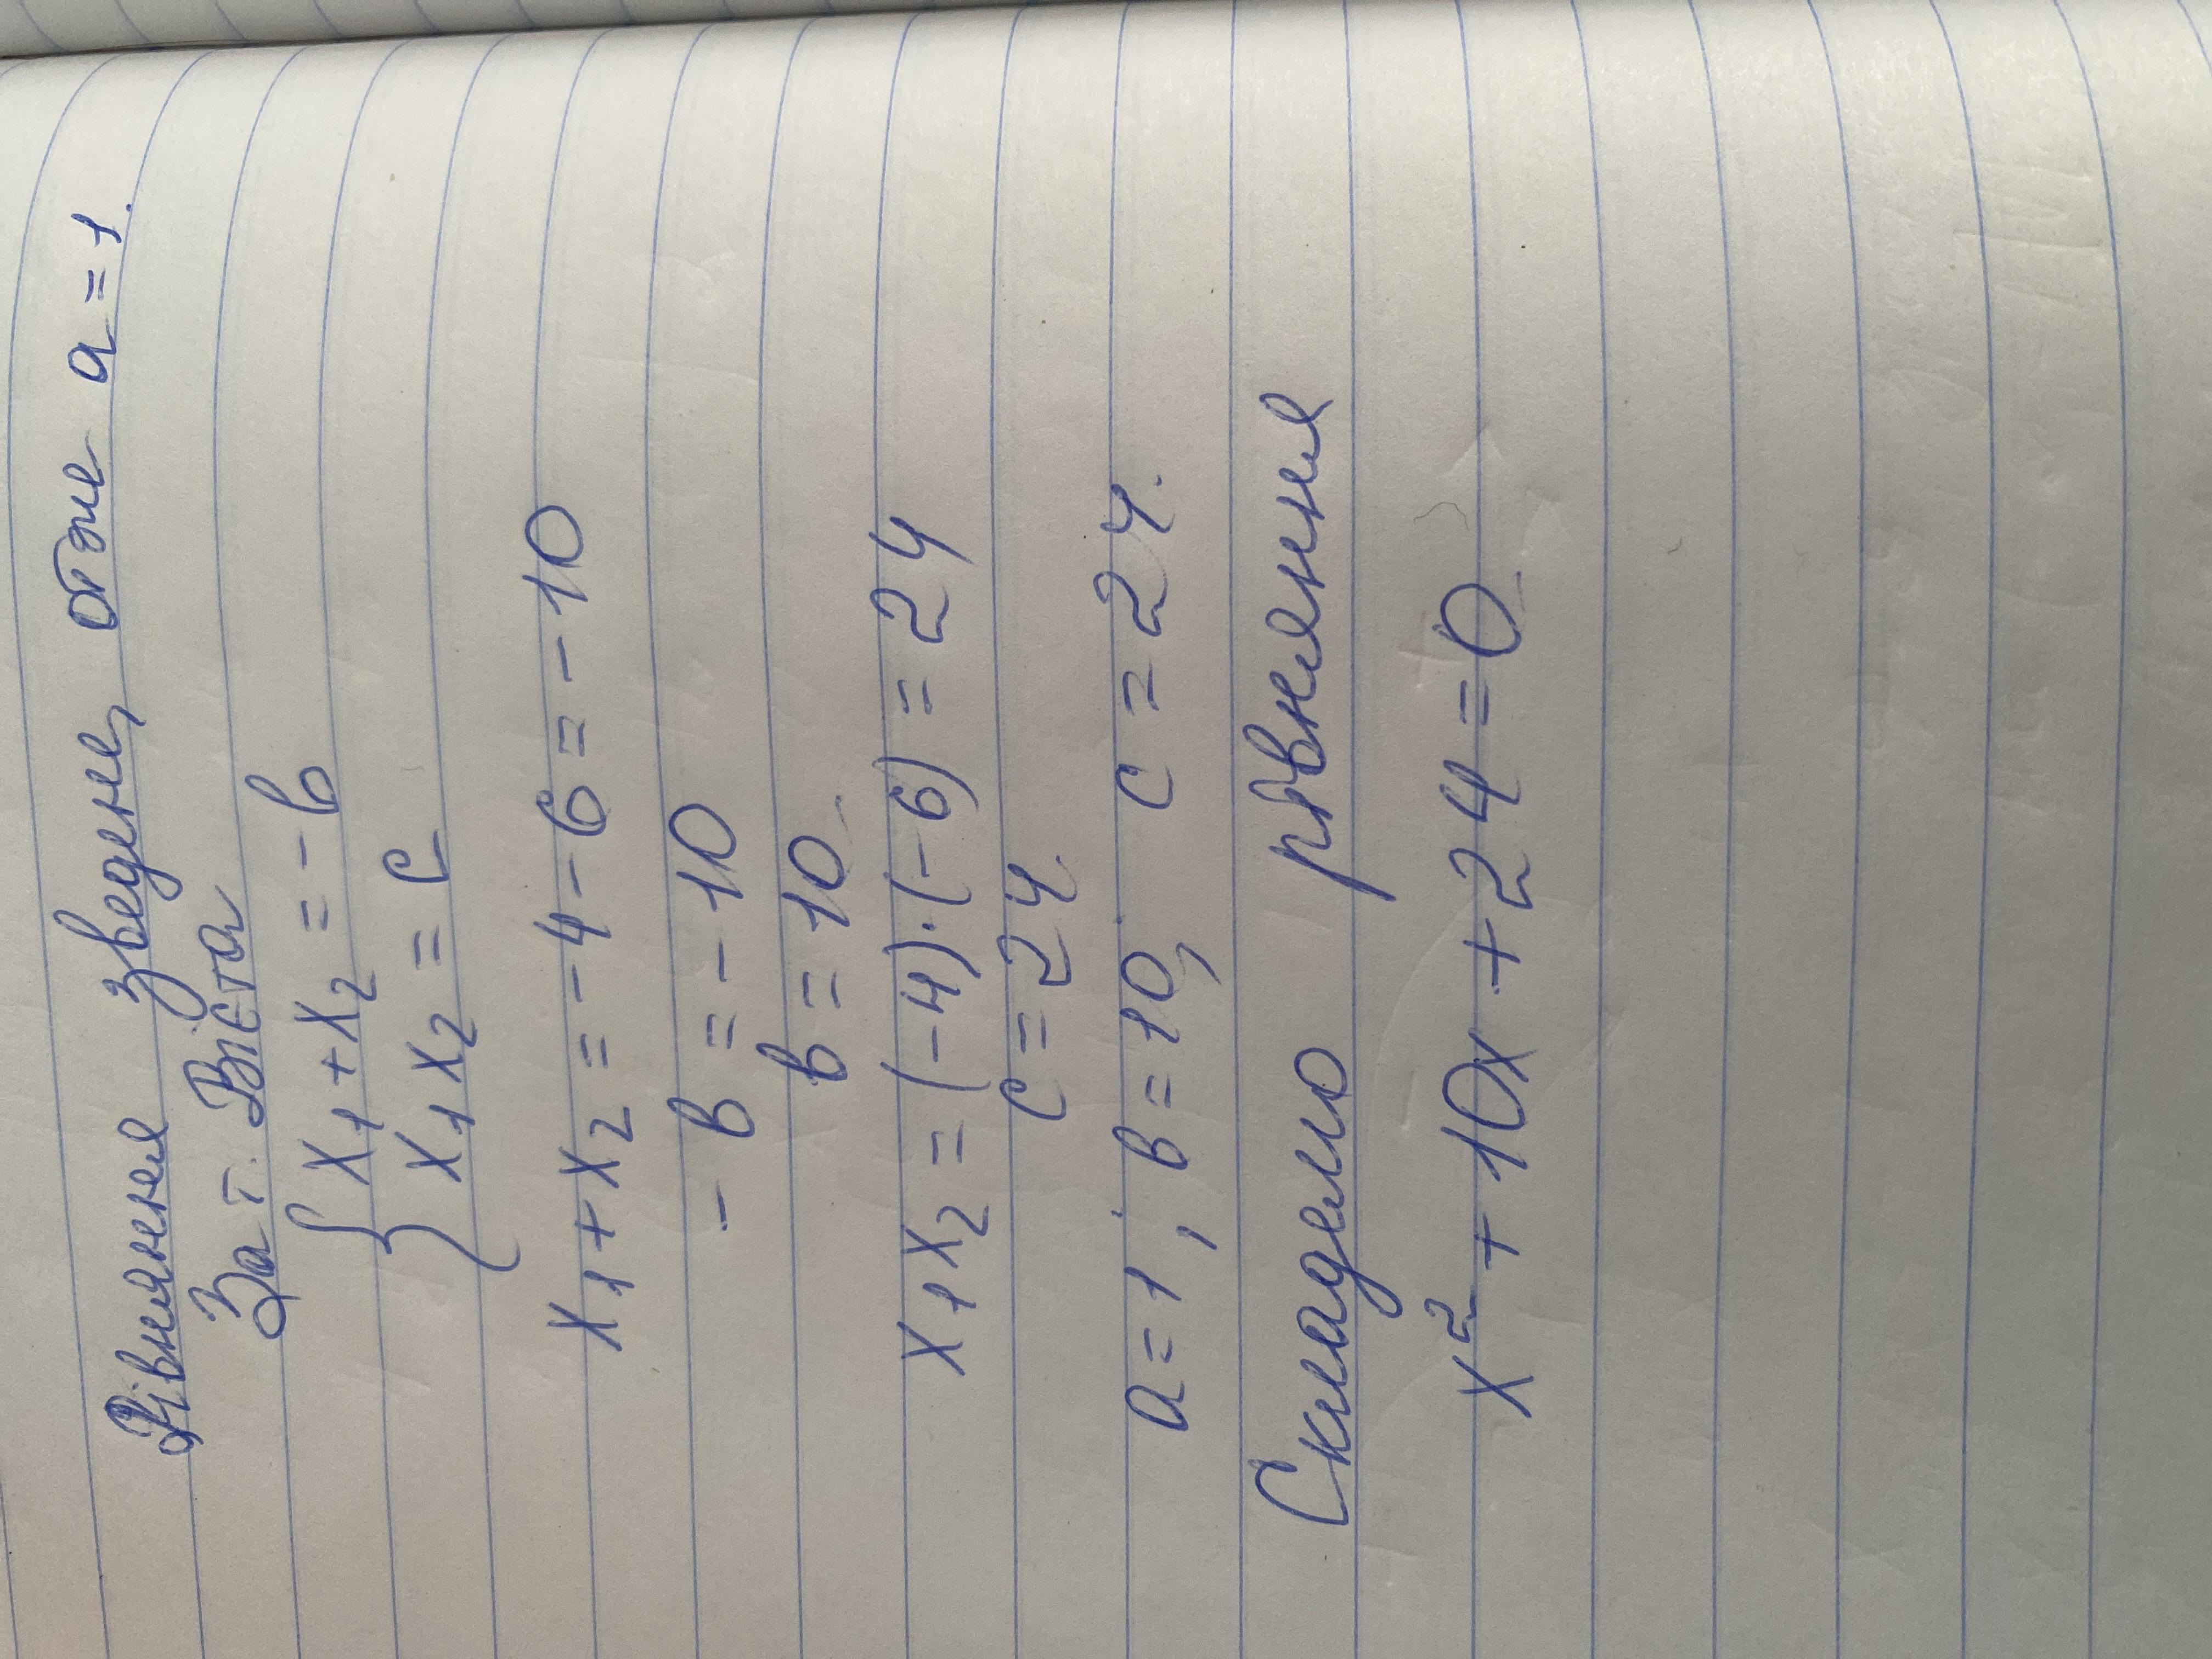 Рівняння зведене, отже a = 1.
За т. Вієта
{ x₁ + x₂ = - b
x₁ x₂ = c
x₁ + x₂ = - 4 - 6 = - 10
- b = - 10
b = 10.
x₁ x₂ = (- 4) · (- 6) = 24
c = 24.
a = 1 ; b = 10; c = 24.
Складемо рівняння
x² + 10x + 24 = 0.